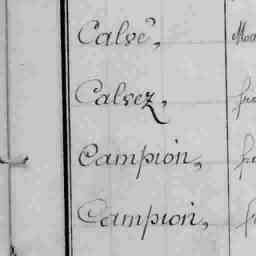 Calvé,
Calvez,
Campion,
Campion,